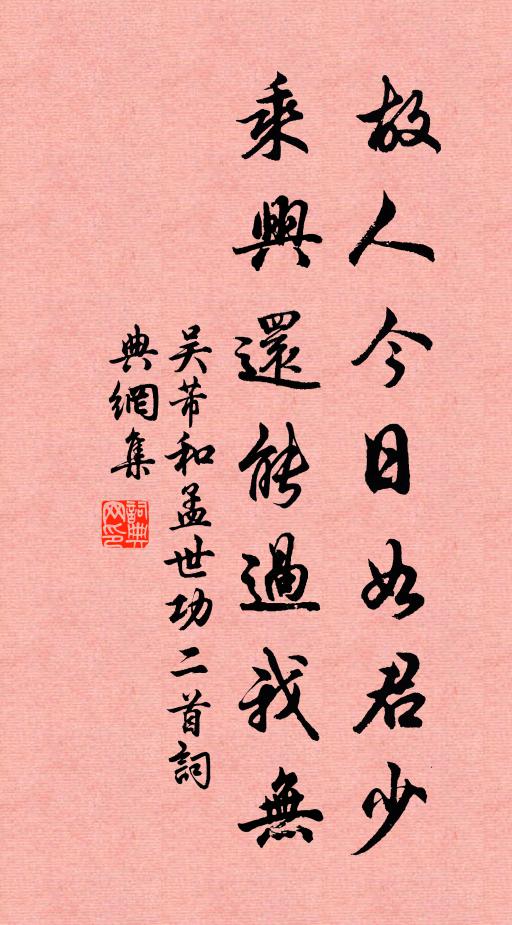 故人今日如君少
乘興還能過我無
吳芾和孟世功二首詞
典網集
詞典
网印